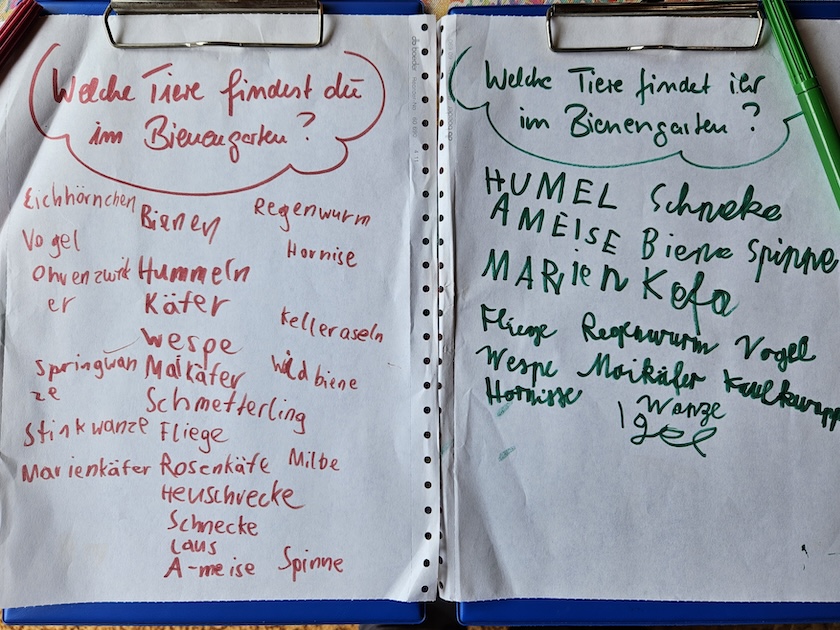 Welche Tiere findest du
im Bienengarten?
Eichhörnchen Bienen Regenwurm
Vogel Hornise
Ohrenzwik Hummeln
er Käfer
Kelleraseln
Wespe
Springwan Maikäfer Wildbiene
ze
Schmetterling
Stinkwanze Fliege
Marienkäfer Rosenkäfe Milbe
Heuschrecke
Schnecke
Laus
A-meise Spinne
Welche Tiere findet ihr
im Bienengarten?
HUMEL Schneke
AMEISE Biene Spinne
MARieN Kefa
Fliege Regenwurm Vogel
Wespe Maikäfer Kaulkwapp
Hornisse Wanze
Igel